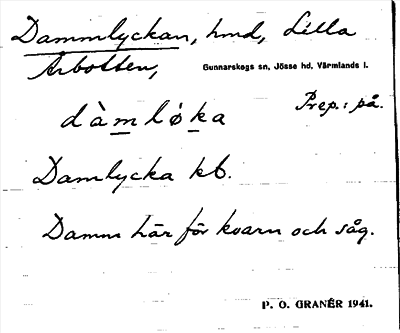 Dammlyckan, hmd, Lilla
Årbotten,
Gunnarskogs sn, Jösse hd, Värmlands l.
dàmlø̀ka Prep.: på.
Damlycka kb.
Damm här för kvarn och såg.
P. O. GRANÉR 1941.